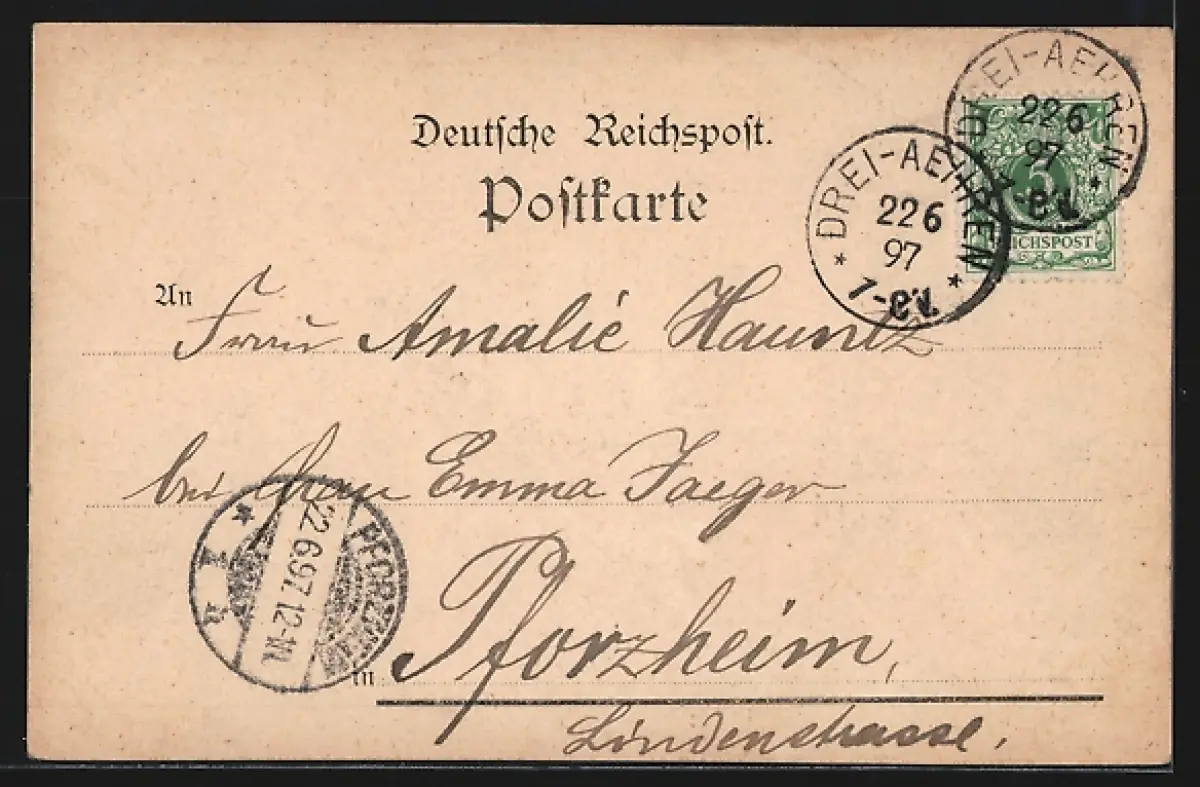 Deutsche Reichspost.
Postkarte
DREI-AEHREN
22 6
97
DREI-AEHREN
22 6
97
7-8V.
5
REICHSPOST
An Frau Amalie Hauntz
bei Frau Emma Jaeger
PFORZHEIM
22.6.97.12-1N.
1
in Pforzheim,
Lindenstrasse.